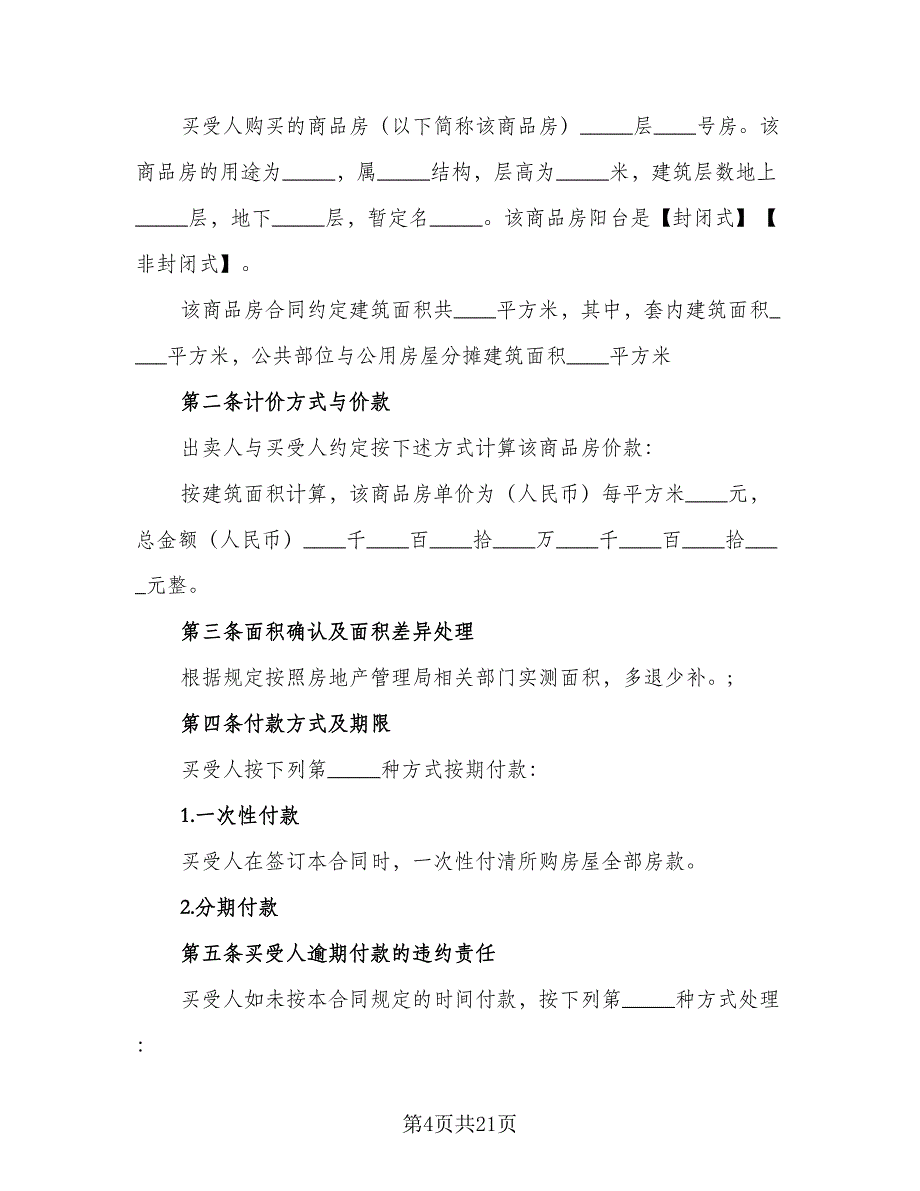 买受人购买的商品房（以下简称该商品房）_____层____号房。该
商品房的用途为_____，属_____结构，层高为_____米，建筑层数地上
_____层，地下_____层，暂定名_____。该商品房阳台是【封闭式】【
非封闭式】。
该商品房合同约定建筑面积共____平方米，其中，套内建筑面积_
___平方米，公共部位与公用房屋分摊建筑面积____平方米
第二条计价方式与价款
出卖人与买受人约定按下述方式计算该商品房价款：
按建筑面积计算，该商品房单价为（人民币）每平方米____元，
总金额（人民币）____千____百____拾____万____千____百____拾___
_元整。
第三条面积确认及面积差异处理
根据规定按照房地产管理局相关部门实测面积，多退少补。；
第四条付款方式及期限
买受人按下列第_____种方式按期付款：
1.一次性付款
买受人在签订本合同时，一次性付清所购房屋全部房款。
2.分期付款
第五条买受人逾期付款的违约责任
买受人如未按本合同规定的时间付款，按下列第_____种方式处理
：
第4页共21页